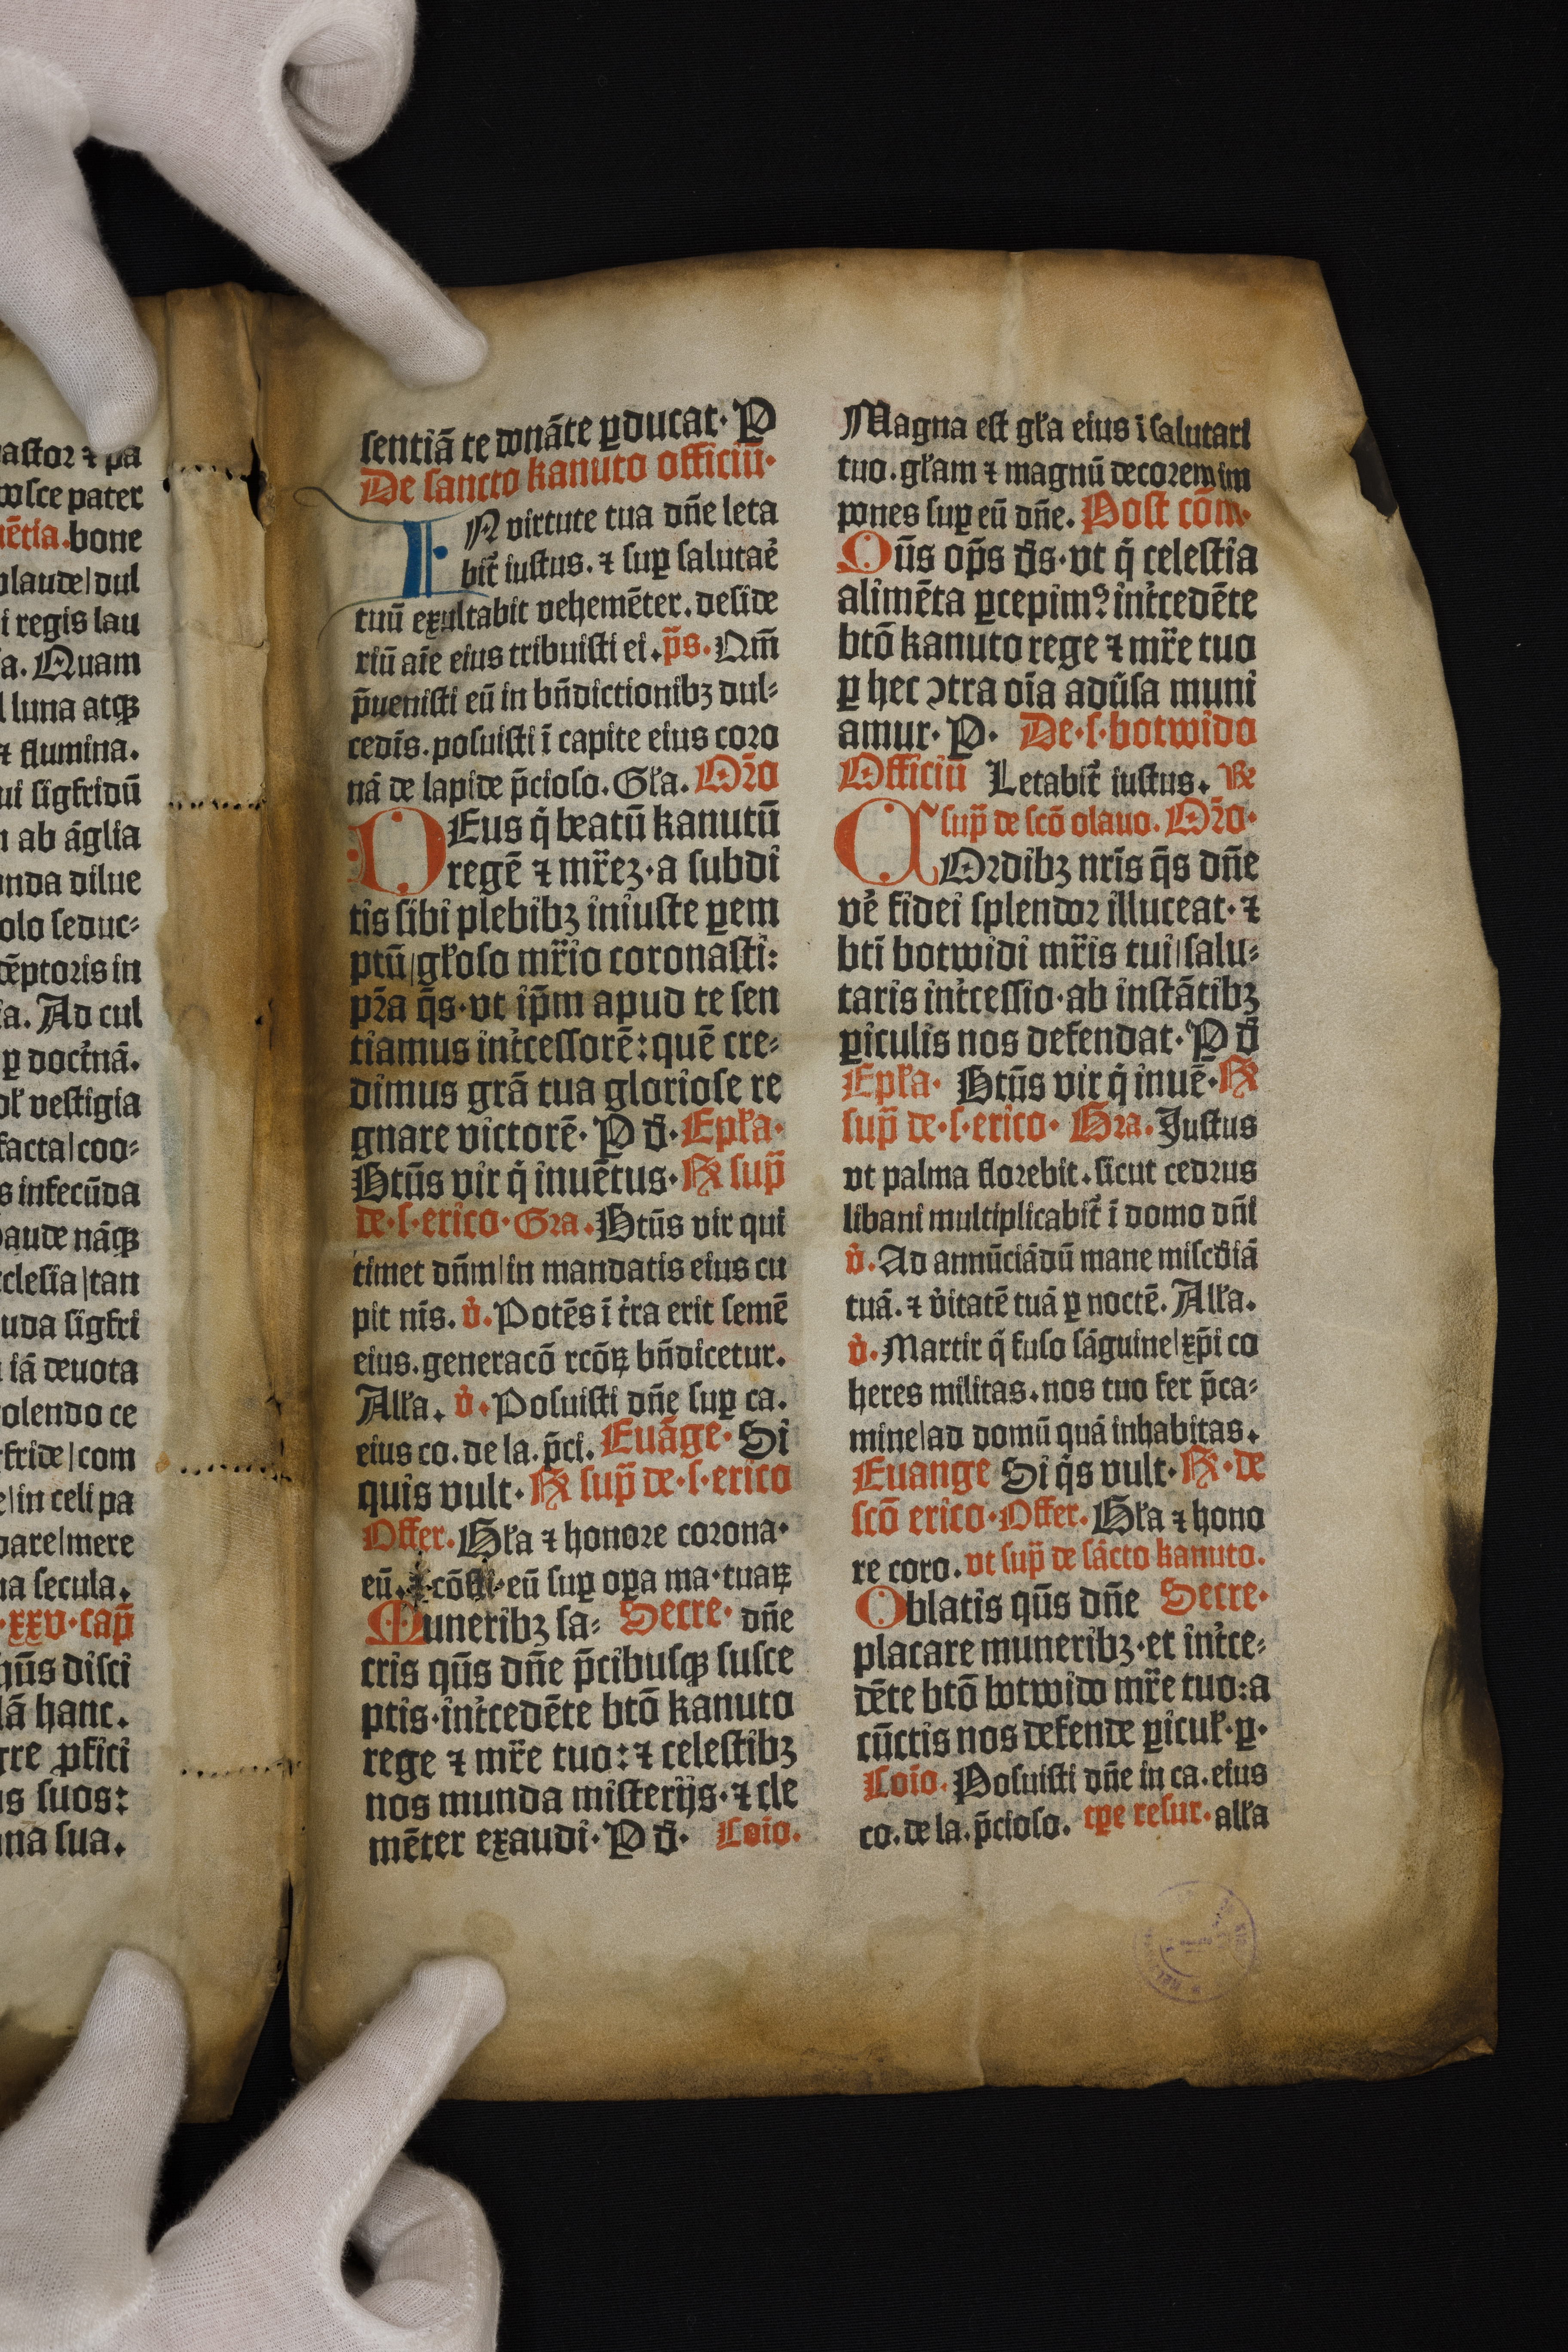 astor ⁊ pa
osce pater
ētia. bone
plaude|dul
i regis lau
a. Quam
l luna atqꝫ
⁊ flumina.
ui sigfridū
n ab āglia
unda dilue
olo seduc⸗
cēptoris in
ia. Ad cul
ꝑ doct̄nā.
vestigia
facta|coo⸗
s infecūda
aude nāqꝫ
cclesia|tan
uda sigfri
iā deuota
olendo ce
fride|com
e|in celi pa
pare|mere
na secula.
·xxv·cap̄
hūs disci
lā hanc.
rre ꝓfici
s suos:
na sua.
sentiā te donāte ꝑducat· P
De sancto kanuto officiū·
IN virtute tua dn̄e leta
bit̄ iustus. ⁊ suꝑ salutar̄
tuū exultabit vehemēter. deside
riū aīe eius tribuisti ei. p̄s. Qm̄
p̄uenisti eū in bn̄dictionibꝫ dul⸗
cedīs. posuisti ī capite eius coro
nā de lapide p̄cioso. Gła. Or̄o
DEus q̄ beatū kanutū
regē ⁊ mr̄eꝫ·a subdi
tis sibi plebibꝫ iniuste ꝑem
ptū|głoso mr̄io coronasti:
pr̄a q̄s·vt ip̄m apud te sen
tiamus int̄cessorē: quē cre⸗
dimus grā tua gloriose re
gnare victorē· P d̄· Epła·
Btūs vir q̄ inuētus· R̷ sup̄
de·s·erico·Gra. Btūs vir qui
timet dn̄m|in mandatis eius cu
pit nīs. v̄. Potēs ī t̄ra erit semē
eius. generacō rcōꝝ bn̄dicetur.
Ałła. v̄. Posuisti dn̄e suꝑ ca.
eius co. de la. p̄ci. Euāge· Si
quis vult· R̷ sup̄ de·s·erico
Offer. Gła ⁊ honore corona·
eū. ⁊ cōsti·eū suꝑ oꝑa ma·tuaꝝ
Muneribꝫ sa⸗ Secre· dn̄e
cris qūs dn̄e p̄cibusqꝫ susce
ptis·int̄cedēte btō kanuto
rege ⁊ mr̄e tuo: ⁊ celestibꝫ
nos munda misterijs·⁊ cle
mēter exaudi· P d̄· Coīo.
Magna est gła eius ī salutari
tuo. głam ⁊ magnū decorem im
pones suꝑ eū dn̄e. Post cōm·
Oūs op̄s d̄s·vt q̄ celestia
alimēta ꝑcepimꝰ int̄cedēte
btō kanuto rege ⁊ mr̄e tuo
ꝑ hec ↄtra oīa adūsa muni
amur· P· De·s·botwido
Officiū Letabit̄ iustus. Re
sup̄ de scō olauo. Or̄o·
COrdibꝫ nrīs q̄s dn̄e
vē fidei splendor illuceat·⁊
btī botwidi mr̄is tui|salu⸗
taris int̄cessio·ab instātibꝫ
ꝑiculis nos defendat· P d̄
Epła· Btūs vir q̄ inuē· R̷
sup̄ de·s·erico· Gra. Justus
vt palma florebit. sicut cedrus
libani multiplicabit̄ ī domo dn̄i
v̄. Ad annūciādū mane misc̄diā
tuā. ⁊ v̄itatē tuā ꝑ noctē. Ałła.
v̄. Martir q̄ fuso sāguine|xp̄i co
heres militas. nos tuo fer p̄ca⸗
mine|ad domū quā inhabitas.
Euange Si q̄s vult· R̷·de
scō erico·Offer. Gła ⁊ hono
re coro. vt sup̄ de sācto kanuto.
Oblatis qūs dn̄e Secre·
placare muneribꝫ·et int̄ce⸗
dēte btō botwido mr̄e tuo: a
cūctis nos defende ꝑicuł·ꝑ·
Coīo. Posuisti dn̄e in ca. eius
co. de la. p̄cioso. tꝑe resur· ałła